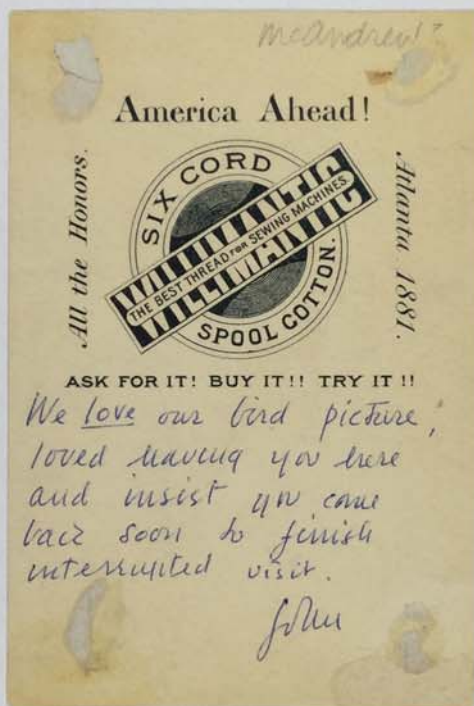 McAndrew?
America Ahead!
All the Honors.
SIX CORD
WILLIMANTIC
THE BEST THREAD FOR SEWING MACHINES
WILLIMANTIC
SPOOL COTTON.
Atlanta, 1881.
ASK FOR IT! BUY IT!! TRY IT!!
We love our bird picture,
loved having you here
and insist you come
back soon to finish
interrupted visit.
John